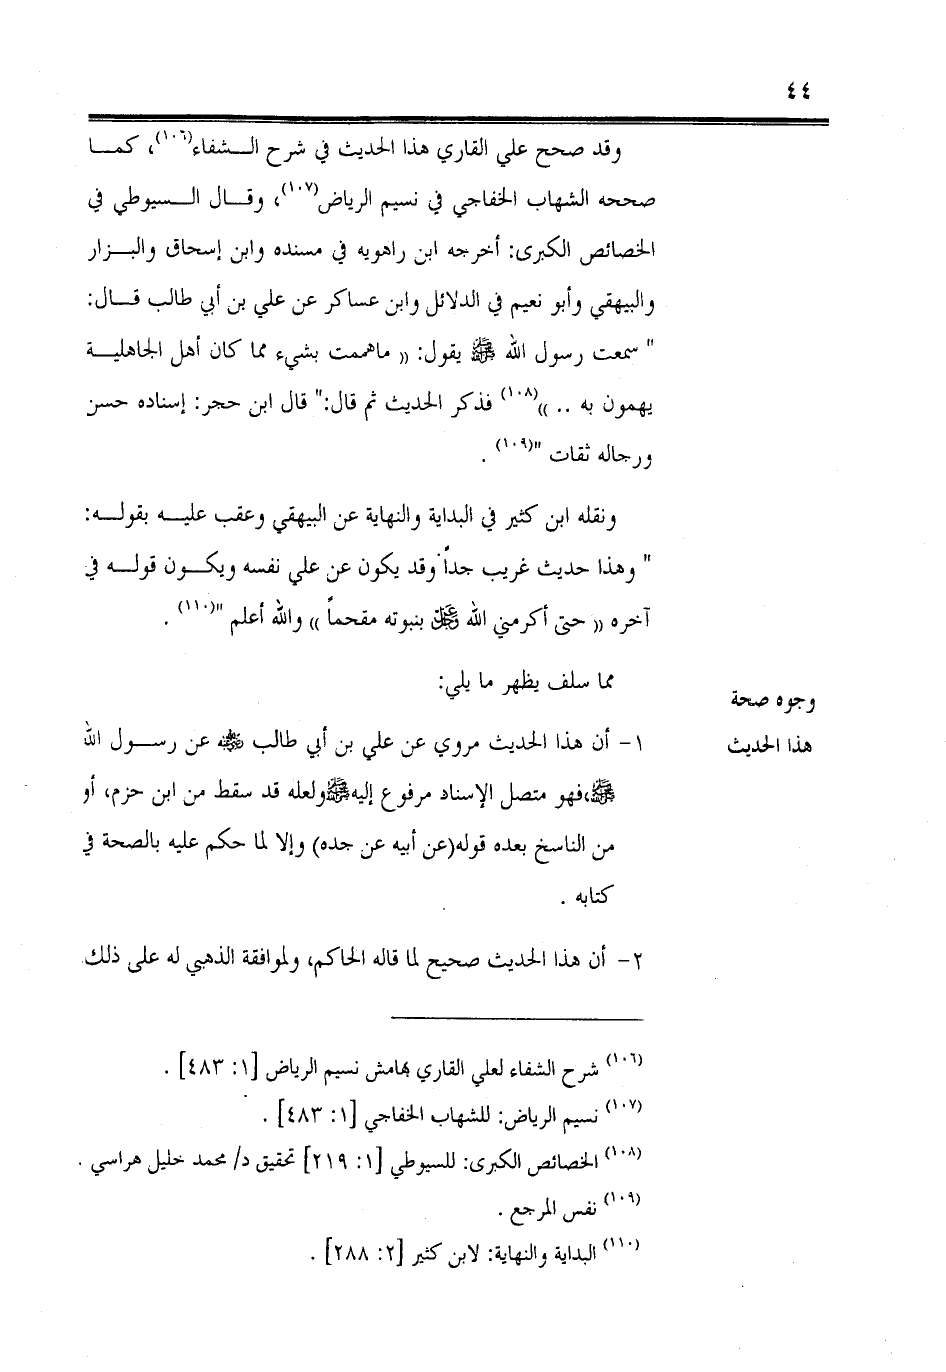 ٤٤
وقد صحح علي القاري هذا الحديث في شرح الـــشفاء(١٠٦)، كمـــا
صححه الشهاب الخفاجي في نسيم الرياض(١٠٧)، وقـــال الـــسيوطي في
الخصائص الكبرى: أخرجه ابن راهويه في مسنده وابن إسحاق والبـــزار
والبيهقي وأبو نعيم في الدلائل وابن عساكر عن علي بن أبي طالب قـــال:
" سمعت رسول الله ﷺ يقول: (( ماهممت بشيء مما كان أهل الجاهليـــة
يهمون به .. ))(١٠٨) فذكر الحديث ثم قال:" قال ابن حجر: إسناده حسن
ورجاله ثقات "(١٠٩) .
ونقله ابن كثير في البداية والنهاية عن البيهقي وعقب عليـــه بقولـــه:
" وهذا حديث غريب جداً وقد يكون عن علي نفسه ويكـــون قولـــه في
آخره (( حتى أكرمني الله ﷻ بنبوته مقحماً )) والله أعلم "(١١٠) .
مما سلف يظهر ما يلي:
وجوه صحة
هذا الحديث
١- أن هذا الحديث مروي عن علي بن أبي طالب ﷺ عن رســـول الله
ﷺ،فهو متصل الإسناد مرفوع إليهﷺولعله قد سقط من ابن حزم، أو
من الناسخ بعده قوله(عن أبيه عن جده) وإلا لما حكم عليه بالصحة في
كتابه .
٢- أن هذا الحديث صحيح لما قاله الحاكم، ولموافقة الذهبي له على ذلك
(١٠٦) شرح الشفاء لعلي القاري بهامش نسيم الرياض [١: ٤٨٣] .
(١٠٧) نسيم الرياض: للشهاب الخفاجي [١: ٤٨٣] .
(١٠٨) الخصائص الكبرى: للسيوطي [١: ٢١٩] تحقيق د/ محمد خليل هراسي .
(١٠٩) نفس المرجع .
(١١٠) البداية والنهاية: لابن كثير [٢: ٢٨٨] .